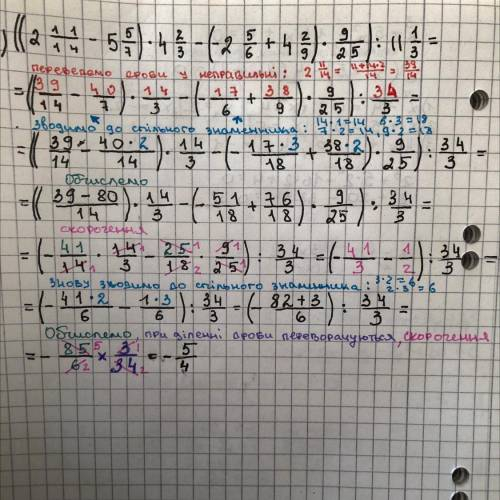 ) ((2 11/14 - 5 5/7) · 4 2/3 - (-2 5/6 + 4 2/9) · 9/25) : 11 1/3 =
переведемо дроби у неправильні: 2 11/14 = 11+14·2/14 = 39/14
= ((39/14 - 40/7) · 14/3 - (-17/6 + 38/9) · 9/25) : 34/3 =
зводимо до спільного знаменника: 14·1=14, 6·3=18
7·2=14, 9·2=18
= ((39/14 - 40·2/14) · 14/3 - (-17·3/18 + 38·2/18) · 9/25) : 34/3 =
Обчислемо
= ((39-80/14) · 14/3 - (-51/18 + 76/18) · 9/25) : 34/3 =
скорочення
= (-41/14 1 · 14 1/3 - 25 1/18 2 · 9 1/25 1) : 34/3 = (-41/3 - 1/2) : 34/3 =
знову зводимо до спільного знаменника: 3·2=6
2·3=6
= (-41·2/6 - 1·3/6) : 34/3 = (-82+3/6) : 34/3 =
Обчислемо при діленні дроби перевертаються, скорочення
= -85 5/6 2 × 3 1/34 2 = -5/4